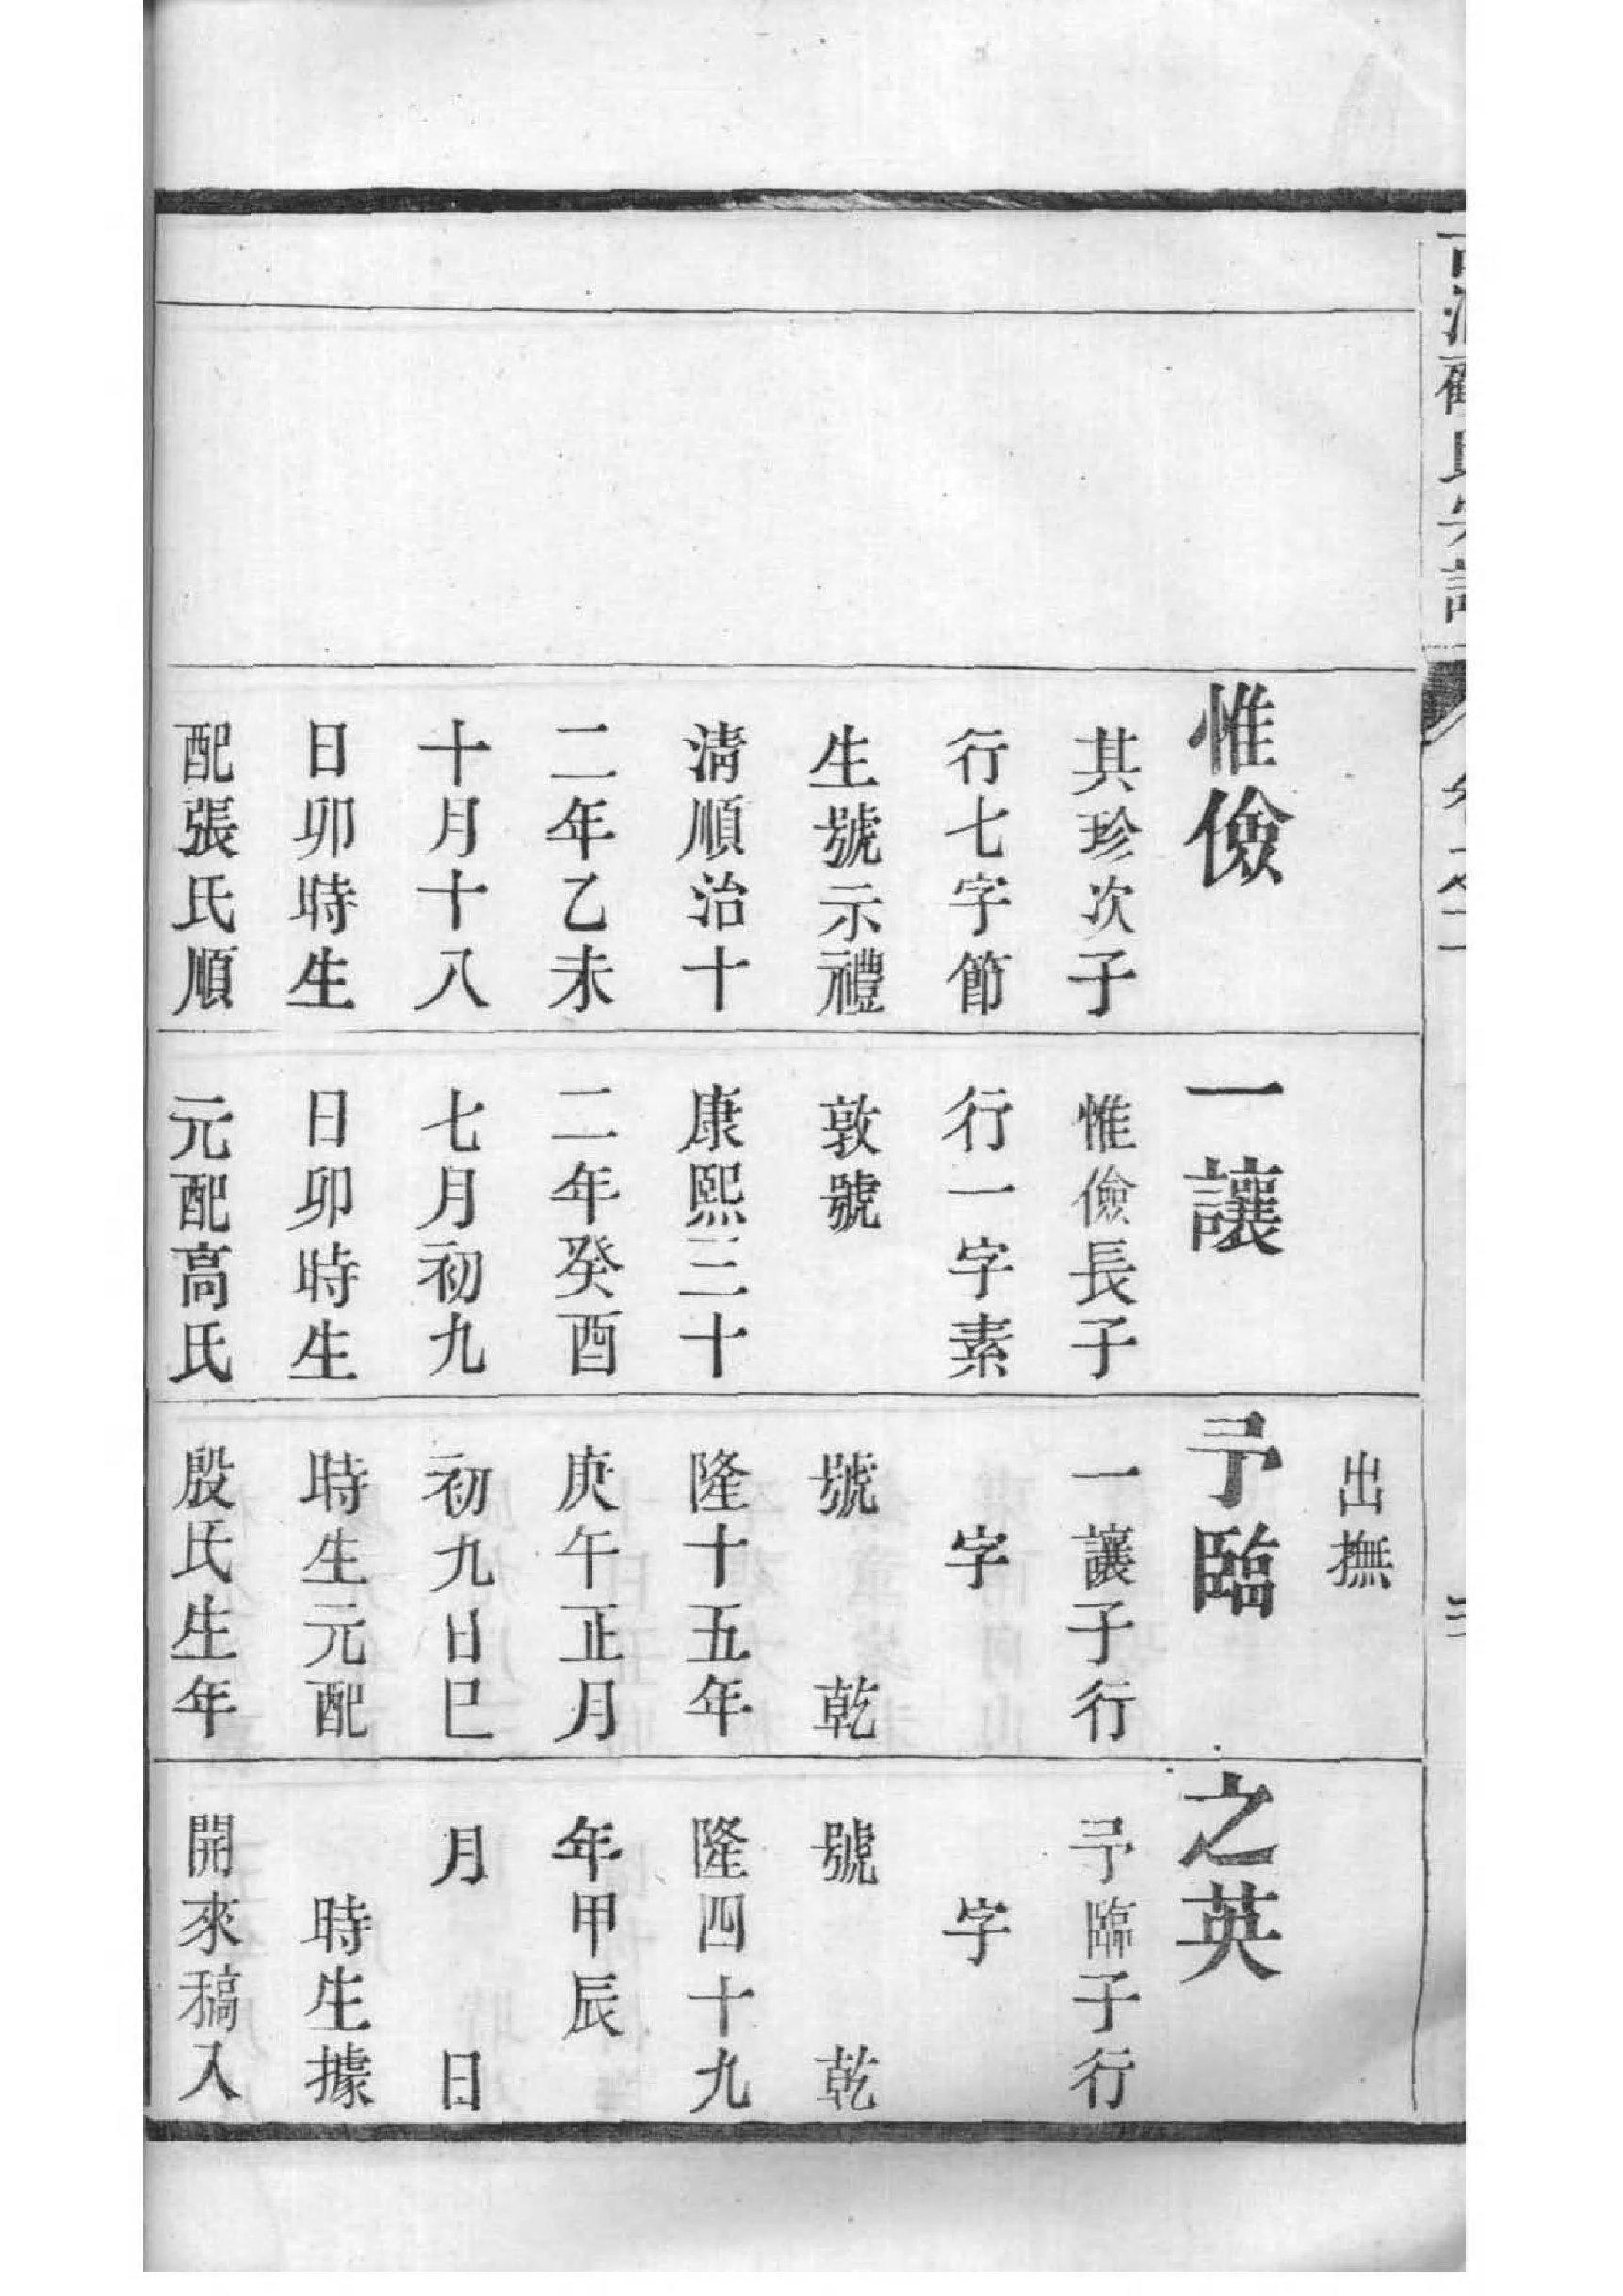 惟儉
其珍次子
行七字節
生號示禮
淸順治十
二年乙未
十月十八
日卯時生
配張氏順
一讓
惟儉長子
行一字素
敦號
康熙三十
二年癸酉
七月初九
日卯時生
元配高氏
出撫
予臨
一讓子行
字
號　乾
隆十五年
庚午正月
初九日巳
時生元配
殷氏生年
之英
予臨子行
字
號　乾
隆四十九
年甲辰
月　日
時生據
開來稿入